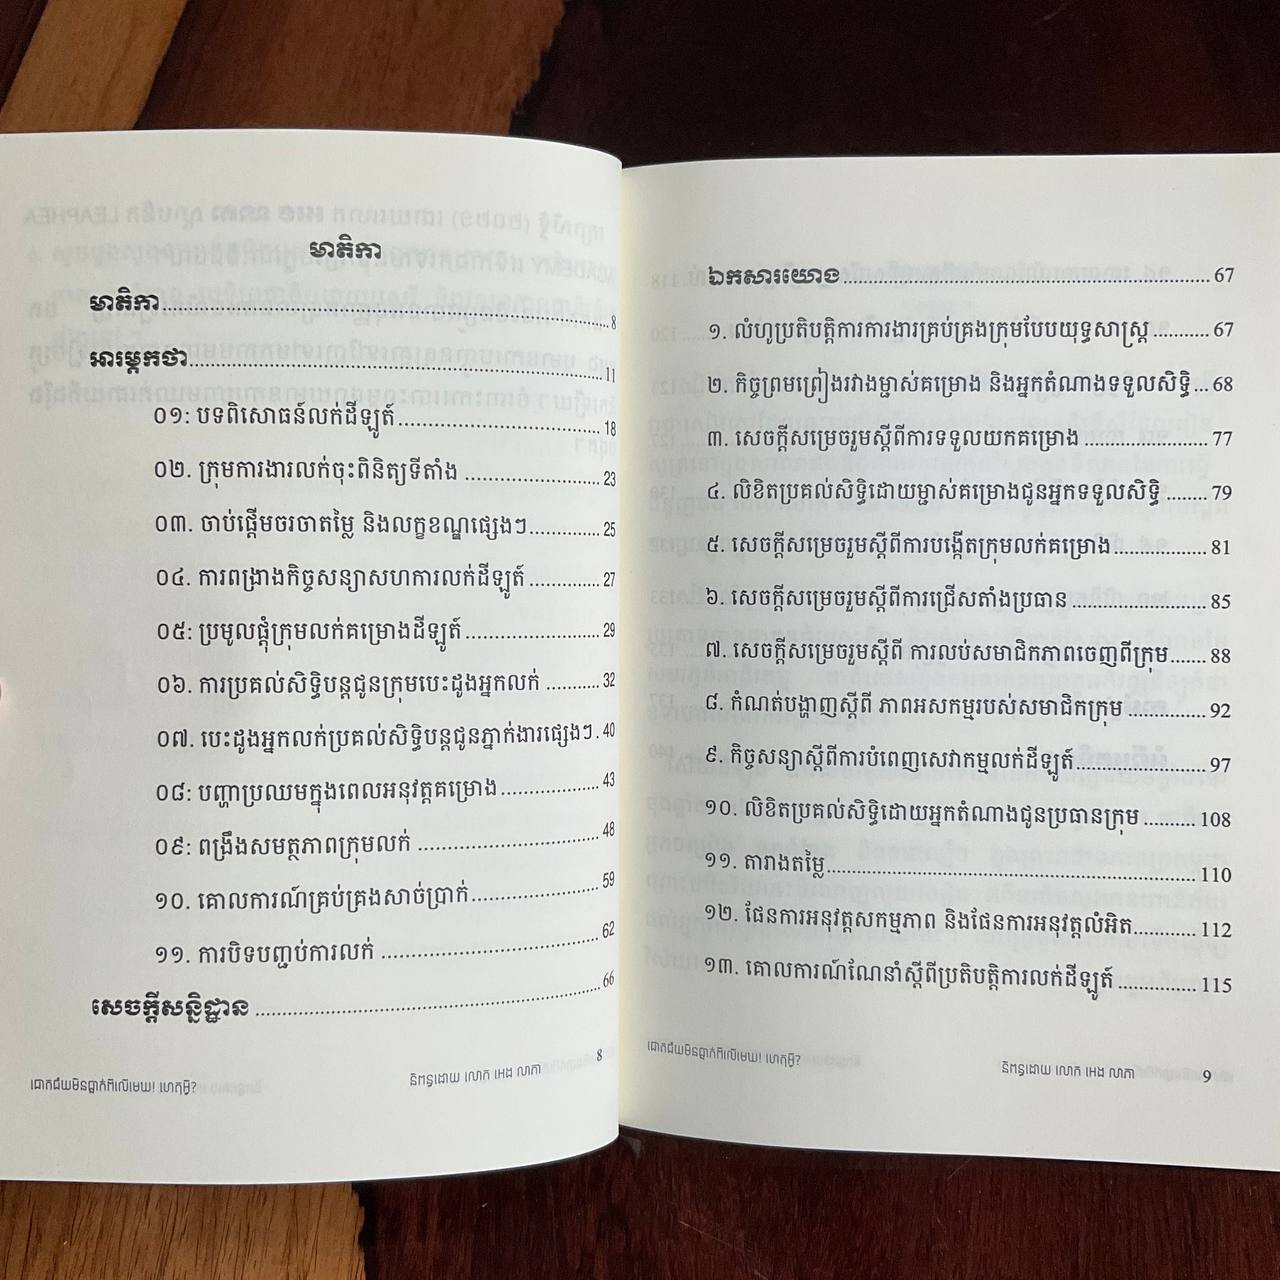 មាតិកា
មាតិកា........................................................................8
អារម្ភកថា........................................................................11
០១: បទពិសោធន៍លក់ដីឡូត៍........................................18
០២. ក្រុមការងារលក់ចុះពិនិត្យទីតាំង ........................23
០៣. ចាប់ផ្តើមចរចាតម្លៃ និងលក្ខខណ្ឌផ្សេងៗ..............25
០៤. ការពង្រាងកិច្ចសន្យាសហការលក់ដីឡូត៍..............27
០៥: ប្រមូលផ្តុំក្រុមលក់គម្រោងដីឡូត៍..........................29
០៦. ការប្រគល់សិទ្ធិបន្តជូនក្រុមបេះដូងអ្នកលក់ ...........32
០៧. បេះដូងអ្នកលក់ប្រគល់សិទ្ធិបន្តជូនភ្នាក់ងារផ្សេងៗ. 40
០៨: បញ្ហាប្រឈមក្នុងពេលអនុវត្តគម្រោង....................43
០៩: ពង្រឹងសមត្ថភាពក្រុមលក់ ..................................48
១០. គោលការណ៍គ្រប់គ្រងសាច់ប្រាក់..........................59
១១. ការបិទបញ្ចប់ការលក់ ........................................62
សេចក្តីសន្និដ្ឋាន ..............................................................66
ជោគជ័យមិនធ្លាក់ពីលើមេឃ! ហេតុអ្វី?
និពន្ធដោយ លោក អេង លាភា
8
ឯកសារយោង..............................................................67
១. លំហូប្រតិបត្តិការការងារគ្រប់គ្រងក្រុមបែបយុទ្ធសាស្ត្រ ..........67
២. កិច្ចព្រមព្រៀងរវាងម្ចាស់គម្រោង និងអ្នកតំណាងទទួលសិទ្ធិ...68
៣. សេចក្តីសម្រេចរួមស្តីពីការទទួលយកគម្រោង ......................77
៤. លិខិតប្រគល់សិទ្ធិដោយម្ចាស់គម្រោងជូនអ្នកទទួលសិទ្ធិ ........79
៥. សេចក្តីសម្រេចរួមស្តីពីការបង្កើតក្រុមលក់គម្រោង................81
៦. សេចក្តីសម្រេចរួមស្តីពីការជ្រើសតាំងប្រធាន .......................85
៧. សេចក្តីសម្រេចរួមស្តីពី ការលប់សមាជិកភាពចេញពីក្រុម.......88
៨. កំណត់បង្ហាញស្តីពី ភាពអសកម្មរបស់សមាជិកក្រុម ..............92
៩. កិច្ចសន្យាស្តីពីការបំពេញសេវាកម្មលក់ដីឡូត៍......................97
១០. លិខិតប្រគល់សិទ្ធិដោយអ្នកតំណាងជូនប្រធានក្រុម .........108
១១. តារាងតម្លៃ..............................................................110
១២. ផែនការអនុវត្តសកម្មភាព និងផែនការអនុវត្តលំអិត............112
១៣. គោលការណ៍ណែនាំស្តីពីប្រតិបត្តិការលក់ដីឡូត៍ ..............115
ជោគជ័យមិនធ្លាក់ពីលើមេឃ! ហេតុអ្វី?
និពន្ធដោយ លោក អេង លាភា
9